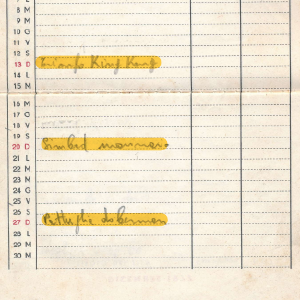 8 M
9 M
10 G
11 V
12 S
13 D Trionfo King Kong
14 L
15 M
16 M
17 G
18 V
19 S
20 D Simbad
21 L
22 M
23 M
24 G
25 V
26 S
27 D Pattuglia dobermann
28 L
29 M
30 M